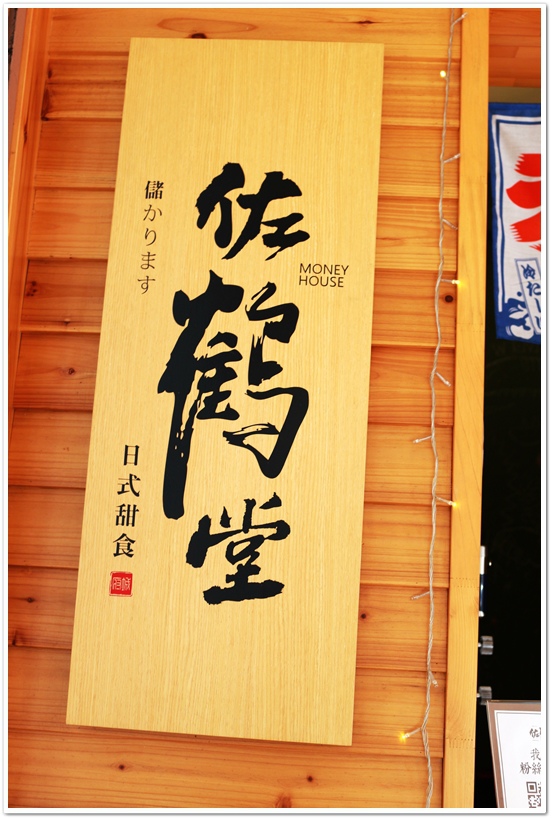 佐鶴堂
MONEY
HOUSE
儲かります
日式甜食
冷た〜い